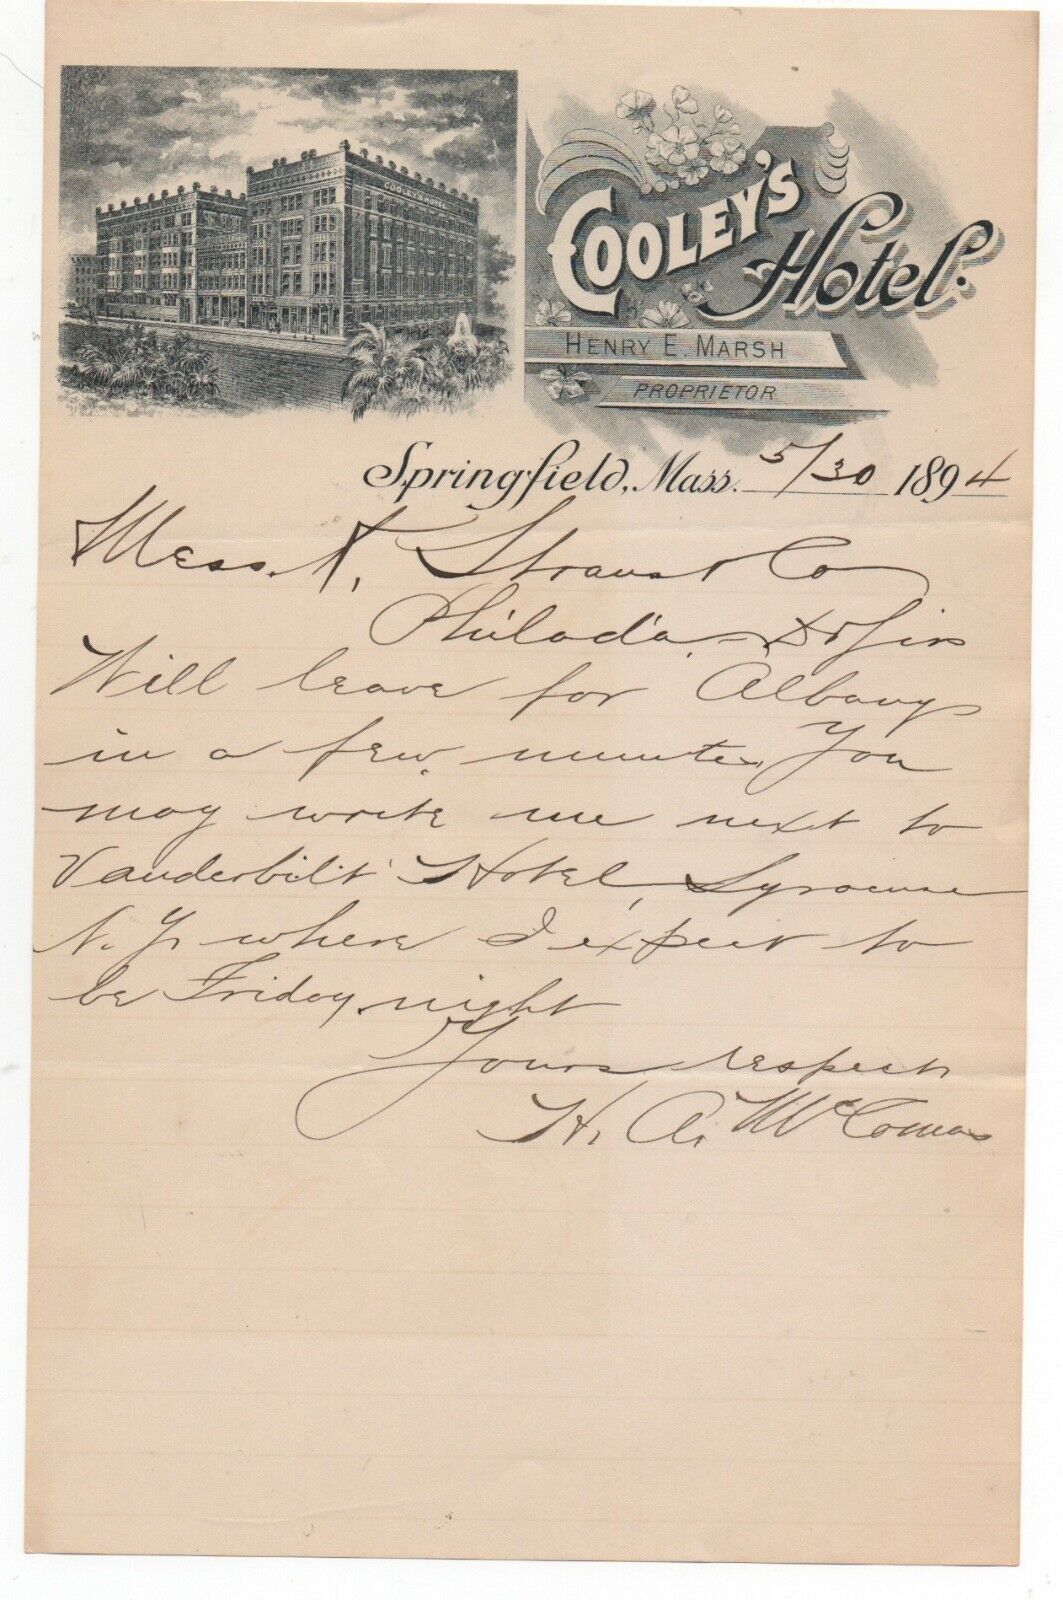 COOLEY'S HOTEL
COOLEY'S
Hotel.
HENRY E. MARSH
PROPRIETOR
Springfield, Mass. 5/30 1894
Mess. Straus & Co
Philad'a. Dr Sirs
Will leave for Albany
in a few minutes. You
may write me next to
Vanderbilt Hotel, Syracuse
N. Y. where I expect to
be Friday night
Yours respect
H. A. McComas